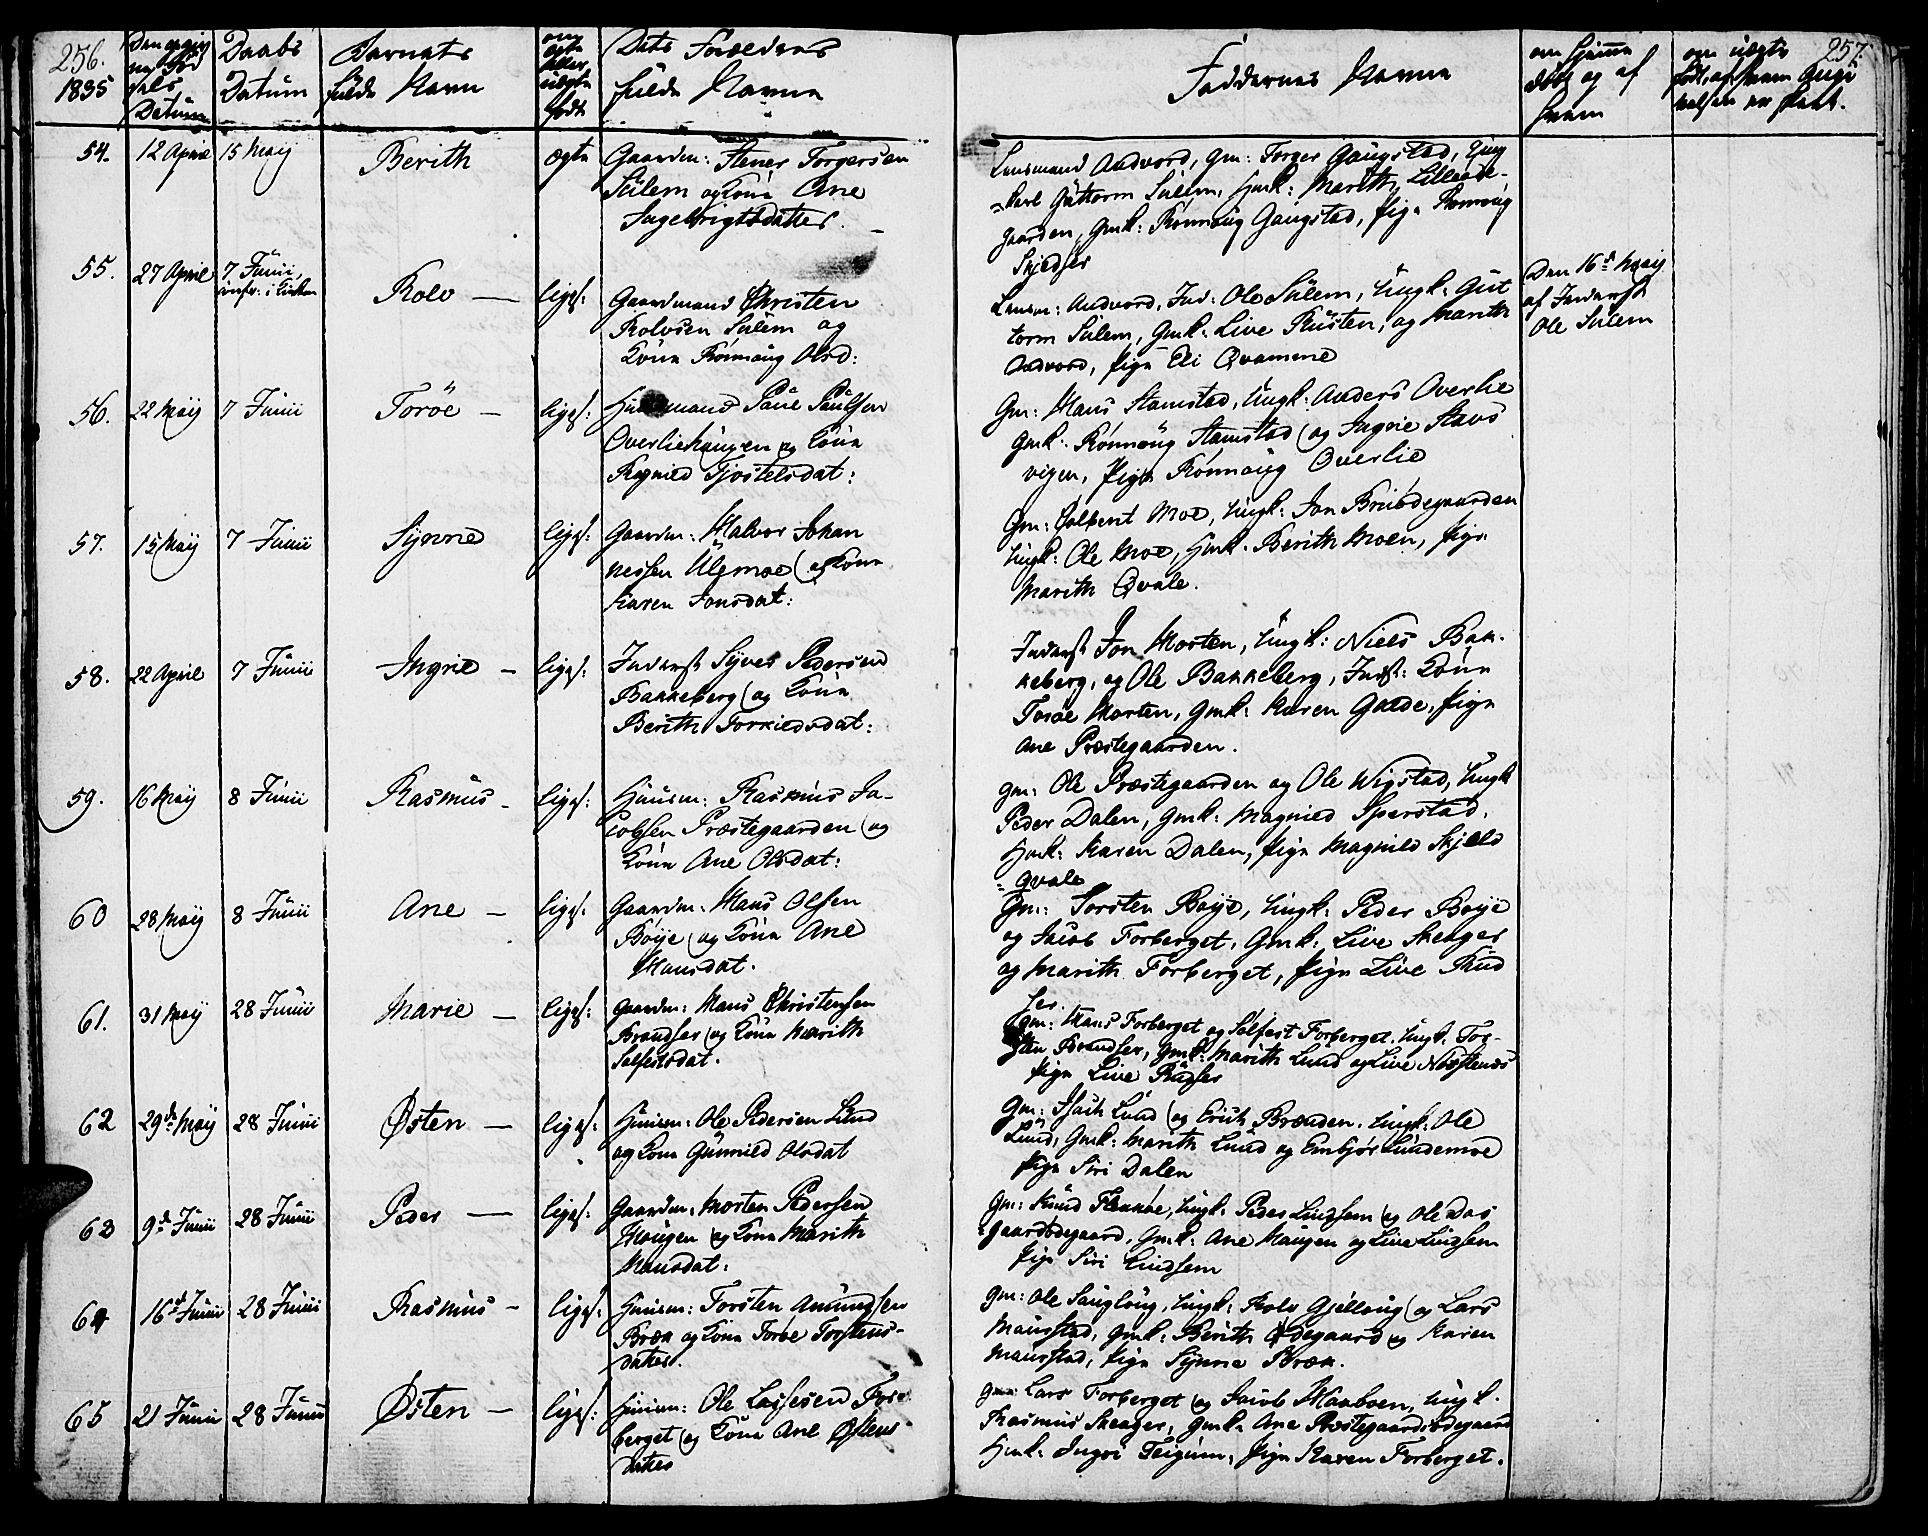 256.
1835
Datum
Daabs
Datum
Barnets
fulde Navn
om
ægte
eller
uægte
født
Dets Forældres
fulde Navne
Faddernes Navne
om hjemme
døbt og af
hvem
om uægte
257.
54. 12 April 15 Maij Berith ægte
Gaardm: Stener Torgersen
Sulem og Kone Ane
Ingebrigtsdatter.
Lensmand Andvord, Gm: Torger Gaugstad, Ung
karl Guttorm Sulem, Gmk: Marith Lilleøde-
gaarden, Gmk: Rønnaug Gaugstad, Pige Rønnaug
55. 27 April 7 Junii, Rolv — liges:
Gaardmand Christen
Rolvsen Sulem og
Kone Rønnaug Olsd:
Lensm: Andvord, Ind: Ole Sulem, Ungk: Gut
torm Sulem, Gmk: Live Rusten, og Marith
Andvord, Pige Eli Qvamme
Den 16d Maij
af Inderst
Ole Sulem
56. 22 Maij 7 Junii Toröe — liges:
Huusmand Paul Paulsen
Overliehaugen og Kone
Ragnild Tjøstelsdat:
Gm: Hans Stamstad, Ungk: Anders Overlie
Gmk: Rønnaug Stamstad og Ingrie Stavs
vigen, Pige Rønnaug Overlie
57. 15 Maij 7 Junii Synne ligs:
Gaardm: Halvor Johan
nessen Ulgmoe og Kone
Karen Jonsdat:
Gm: Colbent Moe, Ungk: Jon Brubdegaarden
Ungk: Ole Moe, Hmk: Berith Moen, Pige
Marith Qvale.
58. 22 April 7 Junii Ingrie — ligs:
Inderst Syver Pedersen
Bakkeberg og Kone
Berith Torkieldsdat:
Inderst Jon Morten, Ungk: Niels Bak-
keberg, og Ole Bakkeberg, Indst: Kone
Toröe Morten, Gmk: Karen Garde, Pige
Ane Præstegaarden.
59. 16 Maij 8 Junii Rasmus — ligs:
Huusm: Rasmus Ja-
cobsen Præstegaarden og
Kone Ane Olsdat:
Gm: Ole Præstegaarden og Ole Wigstad, Ungk
Peder Dalen, Gmk: Magnild Sperstad,
Hmk: Karen Dalen, Pige Magnild Skjæld
=qvale
60 28 Maij 8 Junii Ane — ligs:
Gaardm: Hans Olsen
Böije og Kone Ane
Hansdat.
Gm: Torsten Böije, Ungk: Peder Böije
og Jacob Forberget, Gmk: Live Skeager
og Marith Forberget, Pige Live Rud
ser.
61. 31 Maij 28 Junii Marie — ligs:
Gaardm: Hans Christensen
Brandser og Kone Marith
Solfestsdat.
Gm: Hans Forberget og Solfest Forberget, Ungk: Tor-
sten Brandser, Gmk: Marith Lund og Live
Pige Live Rudser
62 29d Maij 28 Junii Østen — ligs:
Huusm: Ole Pedersen Lund
og Kone Gunnild Olsdat
Gm: Isach Lund og Erich Brænden, Ungk: Ole
Lund, Gmk: Marith Lund og Embjør Lundemoe
Pige Siri Dalen
63 9d Junii 28 Junii Peder — ligs:
Gaardm: Morten Pedersen
Haugen og Kone Marith
Hansdat:
Gm: Knud Flækøe, Ungk: Peder Lindsem og Ole Das
=gaardødegaard, Gmk: Ane Haugen og Live Lindsem
Pige Siri Lindsem
64 16d Junii 28 Junii Rasmus — ligs:
Huusm: Torsten Amundsen
Bræk og Kone Toröe Torstens-
datter.
Gm: Ole Sauglöug, Ungk: Rolv Gjellaug og Lars
Maurstad, Gmk: Berith Ødegaard og Karen
Maurstad, Pige Synne Bræk.
65 21 Junii 28 Junii Østen — ligs:
Huusm: Ole Lassesen For-
berget og Kone Ane Østens
datter
Gm: Lars Forberget og Jacob Haaboen, Ungk.
Rasmus Skeager, Gmk: Ane Præstegaardsødegaard
Hmk: Ingri Teigum, Pige Karen Forberget.